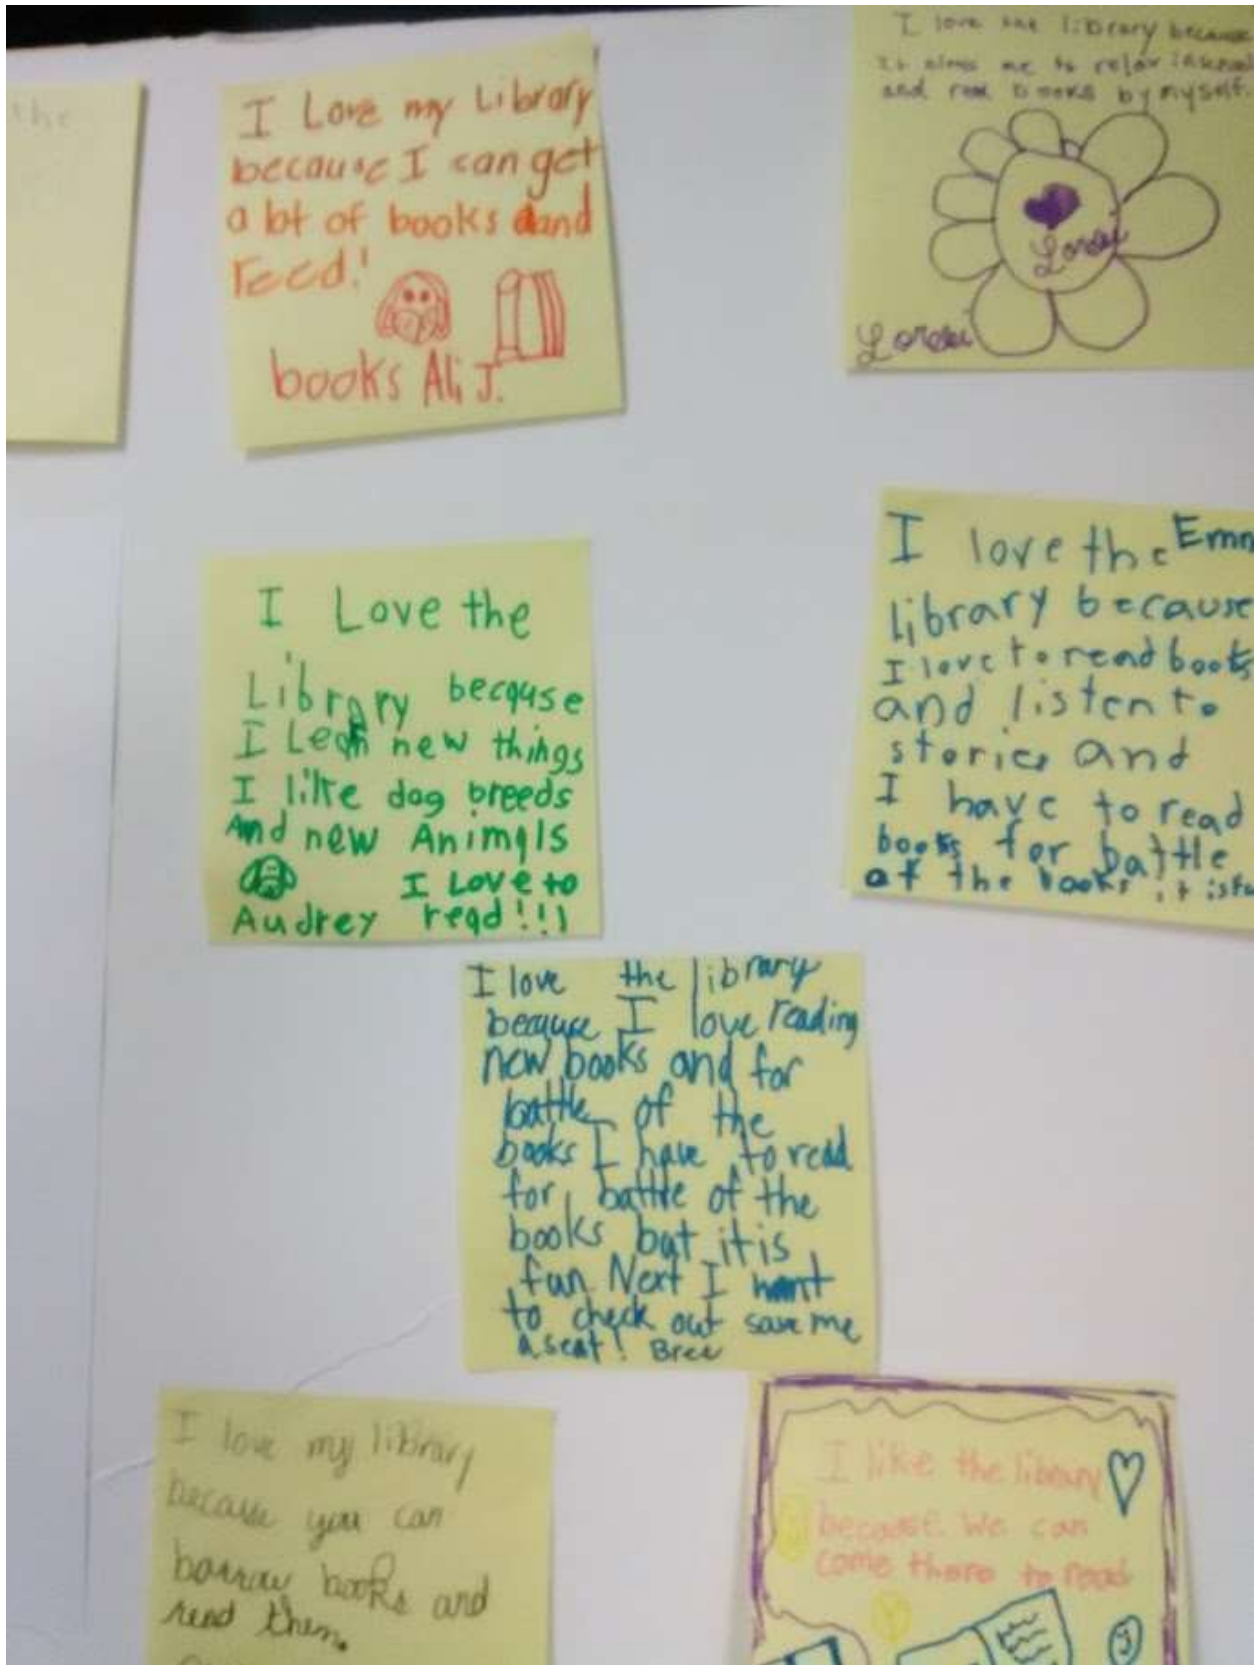 the
I Love my Library
because I can get
a lot of books and
reed!
books Ali J.
I love the library because
It alows me to relax
and read books by myself.
I Love the
Library because
I Learn new things
I like dog breeds
And new Animals
I Love to
Audrey read!!!
I love the Emm
library because
I love to read books
and listen to
stories and
I have to read
books for battle
of the books it is fu
I love the library
because I love reading
new books and for
battle of the
books I have to read
for battle of the
books but it is
fun Next I want
to check out save me
a seat! Bree
I love my library
because you can
borrow books and
read them.
I like the library
because we can
come there to read